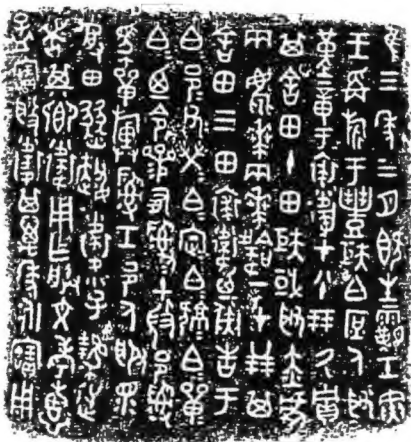 隹三年三月既生霸壬寅
王爯旂于豐矩白庶人取
堇章于裘衛才八十朋厥貯
其舍田十田矩或取赤虎
兩麀𠦪兩𠦪韐一才廿朋其
舍田三田裘衛迺彘告于
白邑父榮白定白白單
白迺令參有𤔲𤔲土微邑𤔲
馬單旟𤔲工邑人服眾
受田燹趙衛小子逆
者其鄉衛用乍朕文考惠
孟寶般衛其萬年永寶用